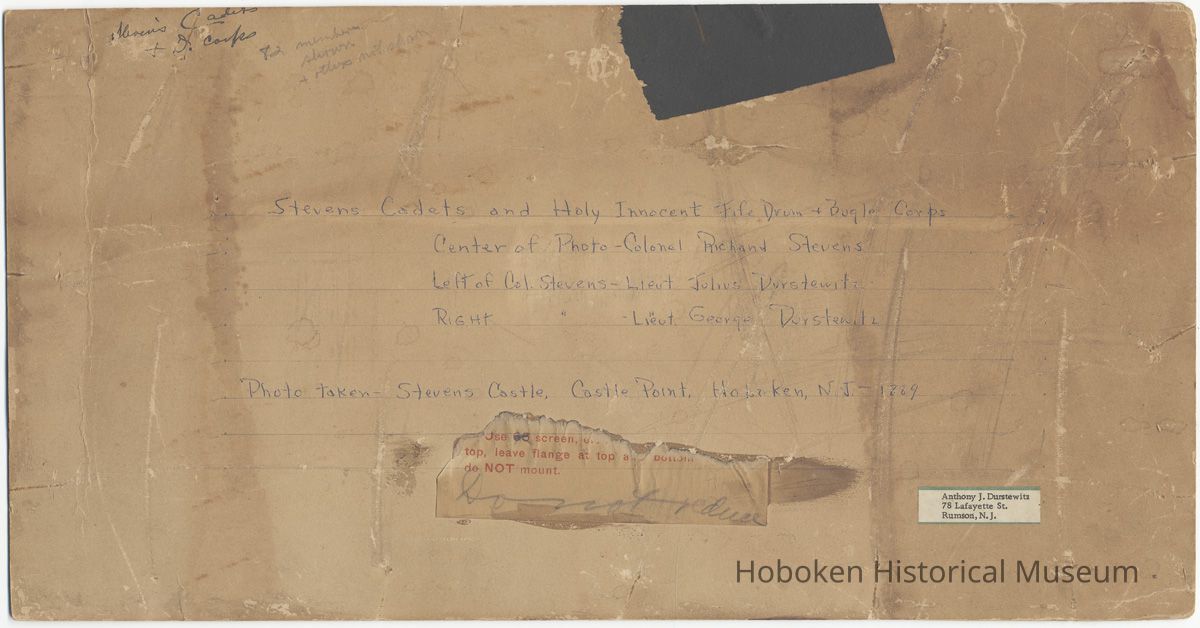 Stevens Cadets
+ D. Corps
82 members
shown
+ others not shown
Stevens Cadets and Holy Innocent Fife Drum + Bugle Corps
Center of Photo - Colonel Richard Stevens
Left of Col. Stevens - Lieut Julius Durstewitz
RIGHT " - Lieut. George Durstewitz
Photo taken - Stevens Castle, Castle Point, Hoboken, N.J. - 1889
Use 65 screen,
top, leave flange at top and bottom
do NOT mount.
Do not reduce
Anthony J. Durstewitz
78 Lafayette St.
Rumson, N. J.
Hoboken Historical Museum